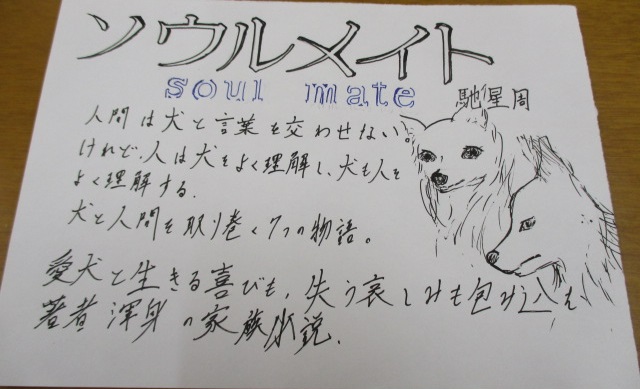 ソウルメイト
soul mate
馳星周
人間は犬と言葉を交わせない。
けれど、人は犬をよく理解し、犬も人を
よく理解する。
犬と人間を取り巻く7つの物語。
愛犬と生きる喜びも、失う哀しみも包み込む、
著者渾身の家族小説。